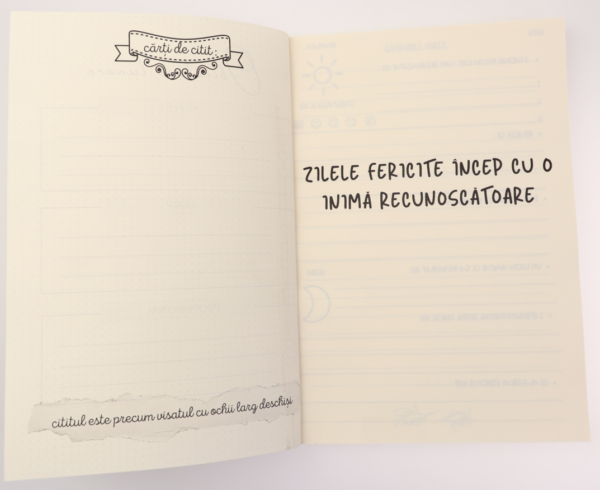 cărți de citit
cititul este precum visatul cu ochii larg deschiși
ZILELE FERICITE ÎNCEP CU O
INIMĂ RECUNOSCĂTOARE